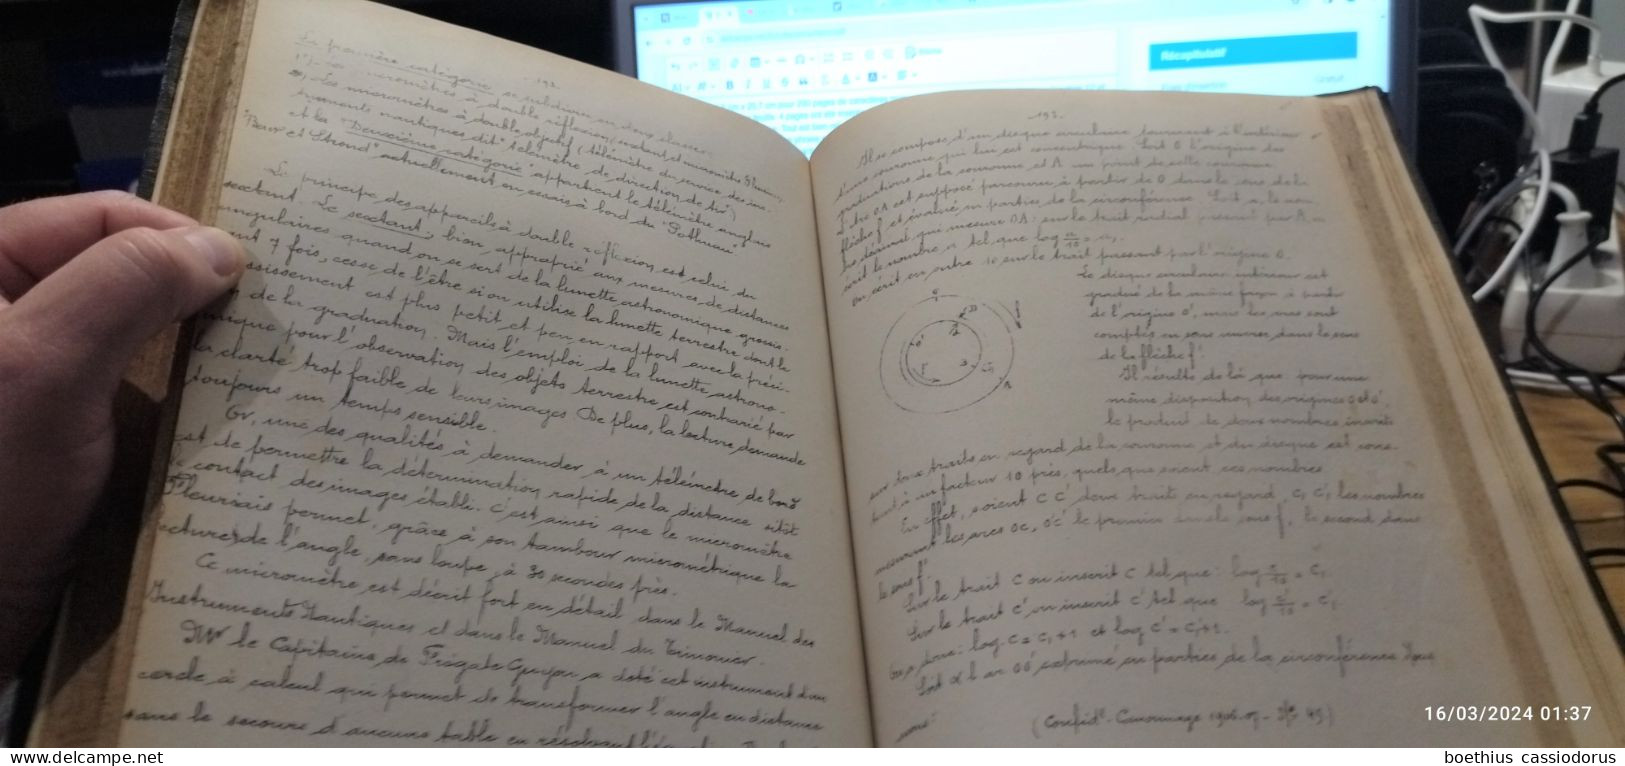 - 192 -
La première catégorie se subdivise en deux classes:
1°) - les micromètres à double réflexion (sextant et micromètre Fleuriais)
2°) Les micromètres à double objectif (télémètre du service des ins-
truments nautiques dit "télémètre de direction de tir")
et la Deuxième catégorie appartient le télémètre anglais
"Barr et Stroud" actuellement en essais à bord du "Pothuau"
Le principe des appareils à double réflexion est celui du
sextant. Le sextant, bien approprié aux mesures de distances
angulaires quand on se sert de la lunette astronomique grossis-
sant 7 fois, cesse de l'être si on utilise la lunette terrestre dont le
grossissement est plus petit et peu en rapport avec la préci-
de la graduation. Mais l'emploi de la lunette astrono-
mique pour l'observation des objets terrestre est contrarié par
la clarté trop faible de leurs images. De plus, la lecture demande
toujours un temps sensible.
Or, une des qualités à demander à un télémètre de bord
est de permettre la détermination rapide de la distance sitôt
le contact des images établi. C'est ainsi que le micromètre
Fleuriais permet, grâce à son tambour micrométrique la
lecture de l'angle, sans loupe, à 30 secondes près.
Ce micromètre est décrit fort en détail dans le Manuel des
Instruments Nautiques et dans le Manuel du Timonier.
Mr le Capitaine de Frégate Guyou a doté cet instrument d'un
cercle à calcul qui permet de transformer l'angle en distance
sans le secours d'aucune table en
- 193 -
Il se compose d'un disque circulaire tournant à l'intérieur
d'une couronne qui lui est concentrique. Soit O l'origine des
graduations de la couronne et A un point de celle couronne
L'arc OA est supposé parcouru à partir de O dans le sens de la
flèche f et évalué en parties de la circonférence. Soit a, le nom-
bre décimal qui mesure OA; sur le trait radial passant par A, on
écrit le nombre a tel que log a/10 = a,.
On écrit en outre 10 sur le trait passant par l'origine O.
Le disque circulaire intérieur est
gradué de la même façon à partir
de l'origine O', mais les arcs sont
comptés en sens inverse, dans le sens
de la flèche f'.
Il résulte de là que pour une
même disposition des origines O et O',
le produit de deux nombres inscrits
sur deux traits en regard de la couronne et du disque est cons-
tant à un facteur 10 près, quels que soient ces nombres
En effet, soient C C' deux traits en regard, C, C', les nombres
mesurant les arcs OC, O'C' le premier dans le sens f, le second dans
le sens f'.
Sur le trait C on inscrit C tel que: log c/10 = C,
Sur le trait C' on inscrit C' tel que log c'/10 = C',
On a donc: log C = C,+1 et log C' = C',+1.
Soit α l'arc OO' exprimé en parties de la circonférence. Nous
avons:
(Confid. - Canonnage 1906-07 - 49.)
16/03/2024 01:37
boethius cassiodorus
Récapitulatif